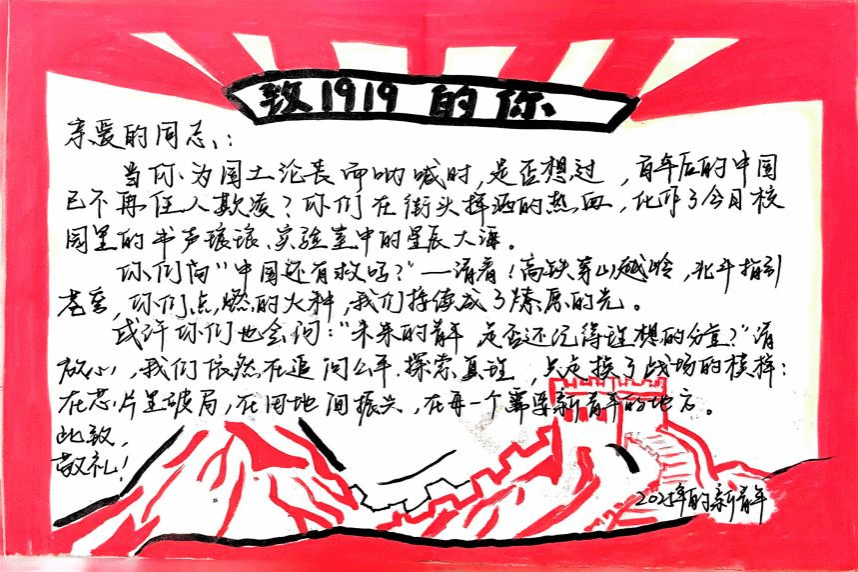 致1919的你
亲爱的同志：
当你为国土沦丧而呐喊时，是否想过，百年后的中国
已不再任人欺凌？你们在街头挥洒的热血，化作了今日校
园里的书声琅琅、实验室中的星辰大海。
你们问“中国还有救吗？”—请看！高铁穿山越岭，北斗指引
苍穹，你们点燃的火种，我们择使成了燎原的光。
或许你们也会问：“未来的青年 是否还记得理想的分量？”请
放心，我们依然在追问公平、探索真理，只是换了战场的模样：
在芯片里破局，在田地间振兴，在每一个需要新青年的地方。
此致，
敬礼！
2025年的新青年